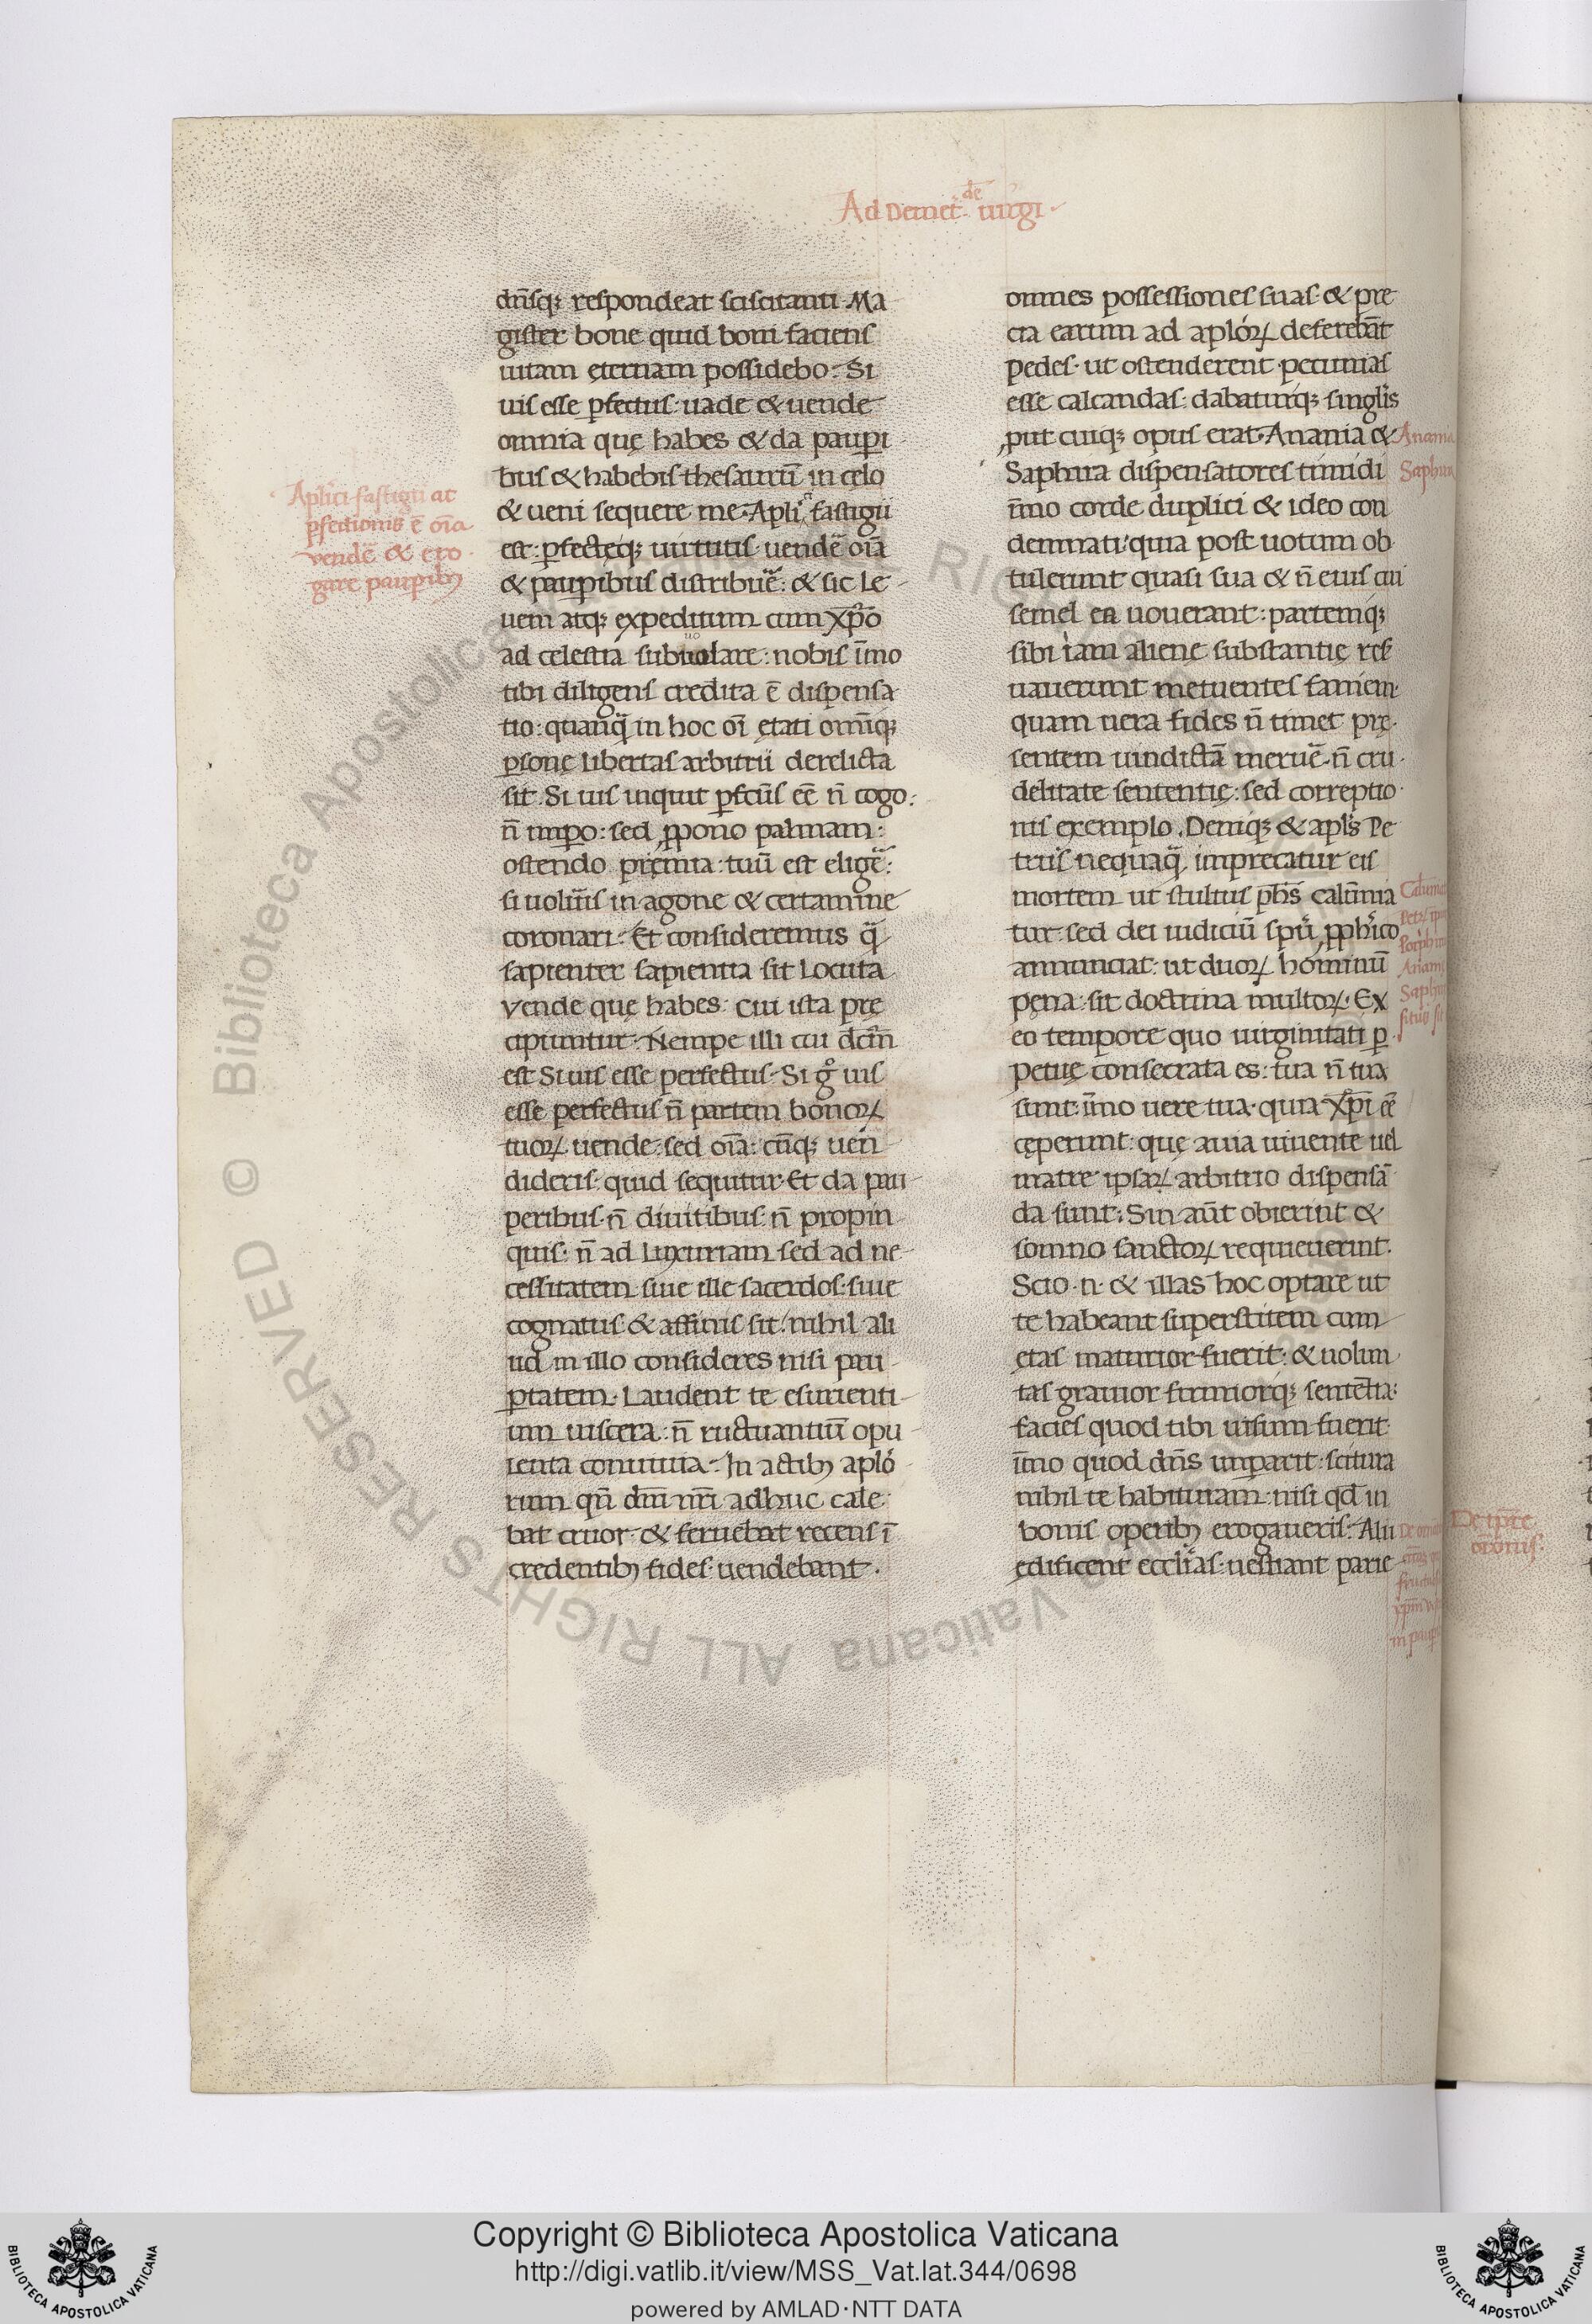 Ad Demet. de uirgi.
dn̄sq; respondeat sciscitanti. Ma
gister bone quid boni faciens
uitam ęternam possidebo. Si
uis esse p̱fectus. uade & uende
omnia quę habes & da paup̱i
bus & habebis thesaurū in cęlo
& ueni sequere me. Apl̄ici fastigii
est: p̱fectęq; uirtutis uendē om̄ia
& paup̱ibus distribuē: & sic le
uem atq; expeditum cum xp̄o
ad celestia subuolare: nobis īmo
tibi diligens credita ē dispensa
tio: quanq̄ in hoc om̄i ętati omīq;
p̱sonę libertas arbitrii derelicta
sit. Si uis inquit p̱fcūs eē n̄ cogo:
n̄ imp̱o: sed ꝓpono palmam:
ostendo pręmia: tuū est eligē:
si uolūis in agone & certamine
coronari. Et consideremus q̄
sapienter sapientia sit locuta
vende quę habes. Cui ista pre
cipiuntur. Nempe illi cui dcm̄
est Si uis esse perfectus. Si gͦ uis
esse perfectus n̄ partem bonoꝝ
tuoꝝ uende: sed om̄ia: cūq; uen
dideris: quid sequitur. Et da pau
peribus. n̄ diuitibus. n̄ propin
quis. n̄ ad luxuriam sed ad ne
cessitatem. siue ille sacerdos. siue
cognatus & affinis sit: nihil ali
ud in illo consideres nisi pau
p̱tatem. Laudent te esurienti
um uiscera: n̄ ructuantiū opu
lenta conuiuia. In actibꝫ aplo
rum qn̄ dn̄i nr̄i adhuc cale
bat cruor. & feruebat recens ī
credentibꝫ fides. uendebant.
Apl̄ici fastigii at
p̱fectionis ē om̄ia
vendē & ero
gare paup̱ibꝫ
omnes possessiones suas. & pre
cia earum ad aploꝝ deferebāt
pedes. ut ostenderent pecunias
esse calcandas: dabaturq; singlīs
ꝓut cuiq; opus erat. Anania &
Saphira dispensatores timidi
īmo corde duplici & ideo con
demnati. quia post uotum ob
tulerunt quasi sua & n̄ eius cui
semel ea uouerant: partemq;
sibi iam alienę substantię res̄
uauerunt metuentes famem.
quam uera fides n̄ timet. prę
sentem uindictā meruē. n̄ cru
delitate sententię: sed correptio
nis exemplo. Deniq; & apls̄ Pe
trus nequaq̄ imprecatur eis
mortem ut stultus ꝓhs̄ calūnia
tur: sed dei iudiciū spū ꝓphīco
annunciat: ut duoꝝ hominū
pęna: sit doctrina multoꝝ. Ex
eo tempore quo uirginitati p̱
petuę consecrata es: tua n̄ tua
sunt: īmo uere tua. quia xp̄i eē
cęperunt: quę auia uiuente uel
matre ipsaꝝ arbitrio dispensā
da sunt. Sin aūt obierint &
somno sanctoꝝ requieuerint.
Scio .n. & illas hoc optare ut
te habeant superstitem cum
ętas maturior fuerit: & uolun
tas grauior firmiorq; sentētia:
facies quod tibi uisum fuerit
īmo quod dn̄s imp̱arit: scitura
nihil te habituram. nisi qd̄ in
bonis operibꝫ erogaueris. Alii
edificent eccl̄ias: uestiant parie
Saphir
Copyright © Biblioteca Apostolica Vaticana
http://digi.vatlib.it/view/MSS_Vat.lat.344/0698
powered by AMLAD·NTT DATA
BIBLIOTECA APOSTOLICA VATICANA
BIBLIOTECA APOSTOLICA VATICANA
© Biblioteca Apostolica Vaticana ALL RIGHTS RESERVED